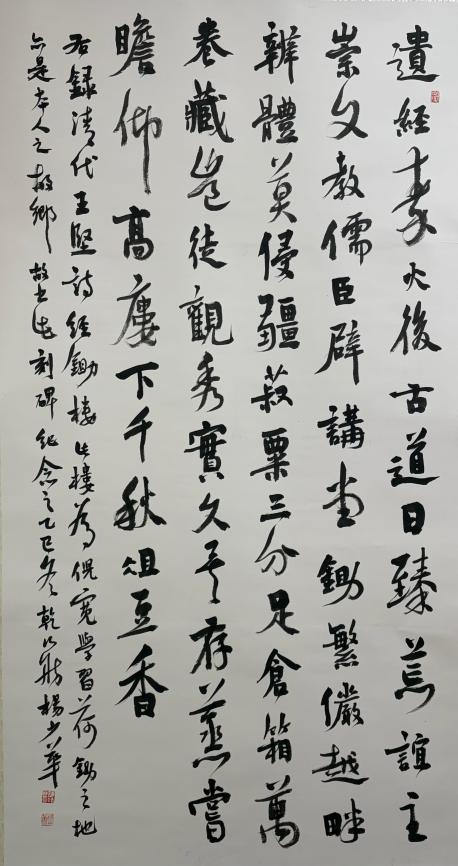 遺經秦火後古道日臻荒誼主
崇文教儒臣辟講堂鋤繁儼越畔
辨體莫侵疆菽粟三分足倉箱萬
卷藏豈徒觀秀實久矣存蒸嘗
瞻仰高廔下千秋俎豆香
右録清代王堅詩經鋤樓此樓為倪寬學習荷鋤之地
亦是本人之故鄉故書此刻碑紀念之乙巳冬乾以勝楊少華